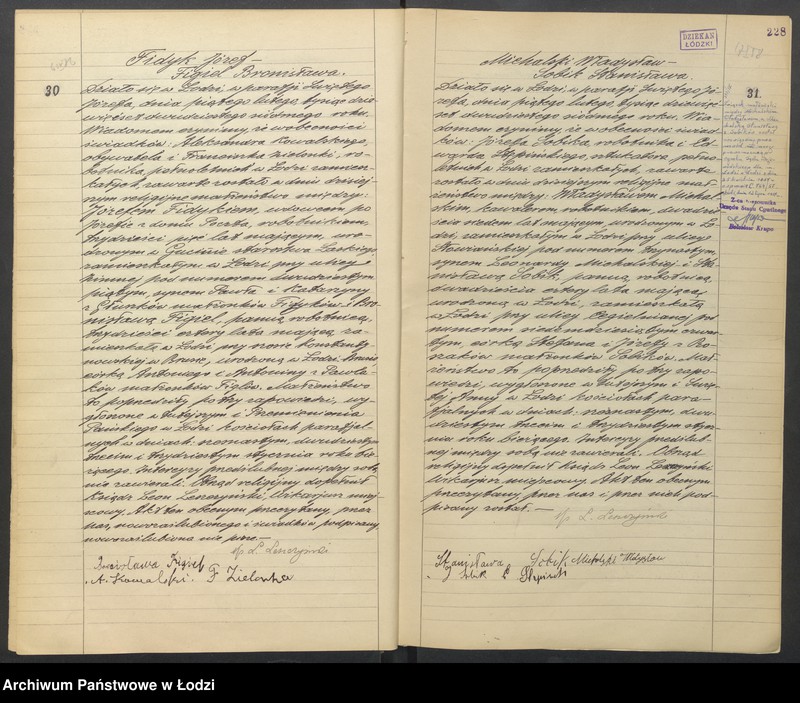 Fidyk Józef
Figiel Bronisława.
30
Działo się w Łodzi w parafji Świętego
Józefa, dnia piątego lutego tysiąc dzie-
więćset dwudziestego siódmego roku.
Wiadomem czynimy, że w obecności
świadków: Aleksandra Kowalskiego,
obywatela i Franciszka Zielonki, ro-
botnika pełnoletnich w Łodzi zamiesz-
kałych, zawarte zostało w dniu dzisiej-
szym religijne małżeństwo między:
Józefem Fidykiem, wdowcem po
Józefie z domu robotnikiem,
trzydzieści pięć lat mającym, uro-
dzonym w starostwa Łaskiego
zamieszkałym w Łodzi przy ulicy
pod numerem dwudziestym
piątym, synem Pawła i Katarzyny
małżonków Fidyków i Bro-
nisławą Figiel, panną robotnicą,
trzydzieści cztery lata mającą, za-
mieszkałą w Łodzi, przy Konstanty-
nowskiej w urodzoną w Łodzi
córką Antoniego i Antoniny z Pawla-
ków małżonków Figlów. Małżeństwo
to poprzedziły po trzy zapowiedzi, wy-
głoszone w tutejszym i Przemienienia
Pańskiego w Łodzi kościołach parafjal-
nych w dniach: szesnastym, dwudziestym
trzecim i trzydziestym stycznia roku bie-
żącego. Intercyzy przedślubnej między sobą
nie zawierali. Obrząd religijny dopełnił
Ksiądz Leon Lenczyński, Wikarjusz miej-
scowy. Akt ten obecnym przeczytany, przez
nas, nowozaślubionego i świadków podpisany
nowozaślubiona nie
L. Lenczyński
Bronisława Figiel
A. Kowalski. F Zielonka
DZIEKAN
ŁÓDZKI
228
Michalski Władysław
Sobik Stanisława.
31.
Działo się w Łodzi, w parafji Świętego Jó-
zefa, dnia piątego lutego, tysiąc dziewięć-
set dwudziestego siódmego roku. Wia-
domem czynimy, że w obecności świad-
ków: Józefa Sobika, robotnika i Ed-
warda pełno-
letnich w Łodzi zamieszkałych, zawarte
zostało w dniu dzisiejszym religijne mał-
żeństwo między: Władysławem Michal-
skim, kawalerem robotnikiem, dwadzie-
ścia siedem lat mającym urodzonym w Ło-
dzi, zamieszkałym w Łodzi przy ulicy
pod numerem trzynastym,
synem Leonardy Michalskiej i Sta-
nisławą Sobik, panną, robotnicą,
dwadzieścia cztery lata mającą,
urodzoną w Łodzi, zamieszkałą
w Łodzi przy ulicy, Cegielnianej pod
numerem siedemdziesiątym czwar-
tym, córką Stefana i Józefy z
małżonków Sobików. Mał-
żeństwo to poprzedziły po trzy zapo-
wiedzi, wygłoszone w tutejszym i Świę-
tej Anny w Łodzi kościołach para-
fjalnych w dniach: szesnastym, dwu-
dziestym trzecim i trzydziestym stycz-
nia roku bieżącego. Intercyzy przedślub-
nej między sobą nie zawierali. Obrząd
religijny dopełnił Ksiądz Leon Lenczyński
Wikarjusz miejscowy. Akt ten obecnym
przeczytany przez nas i przez nich pod-
pisany został.
L. Lenczyński
Stanisława Sobik Michalski Władysław
Z-ca Kierownika
Urzędu Stanu Cywilnego
Archiwum Państwowe w Łodzi